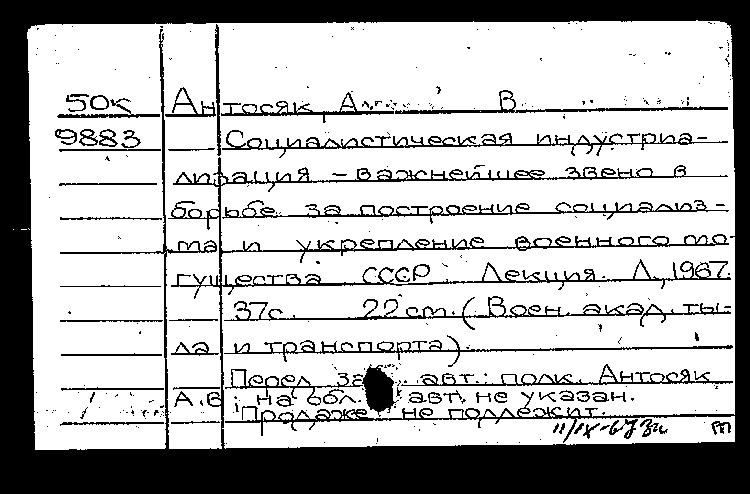 50к Антосяк, А В
9883 Социалистическая индустриа-
лизация – важнейшее звено в
борьбе за построение социализ-
ма и укрепление военного мо-
гущества СССР. Лекция. Л., 1967.
37с. 22 cm. (Воен. акад. ты-
ла и транспорта)
Перед за авт.: полк. Антосяк
А.В; на обл. авт. не указан.
Продаже не подлежит.
11/IX-67